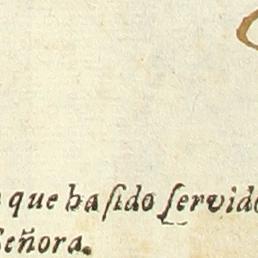 que ha ſido ſervido
Señora.